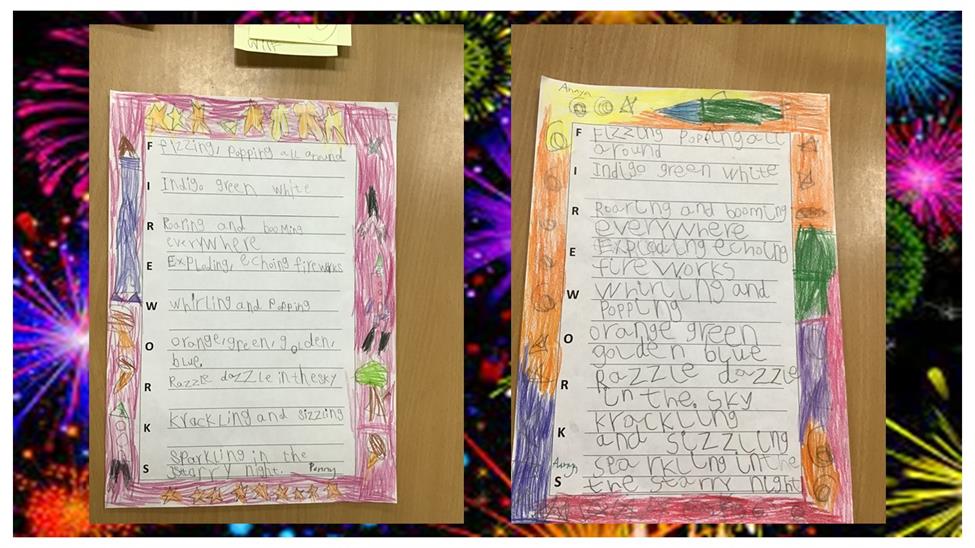 F Fizzing, Popping all around
I Indigo green white
R Roaring and booming
everywhere
E Exploding, echoing fireworks
W whirling and Popping
O orange, green, golden,
blue.
R Razzle dazzle in the sky
K krackling and sizzling
Sparkling in the
S starry night. Penny
Anaya
F Fizzing Popping all
around
I Indigo green white
R Roaring and booming
everywhere
E Exploding echoing
fireworks
W whirling and
Popping
O orange green
golden blue
R Razzle dazzle
in the. sky
K krackling
and sizzling
Anaya sparkling in the
S the starry night